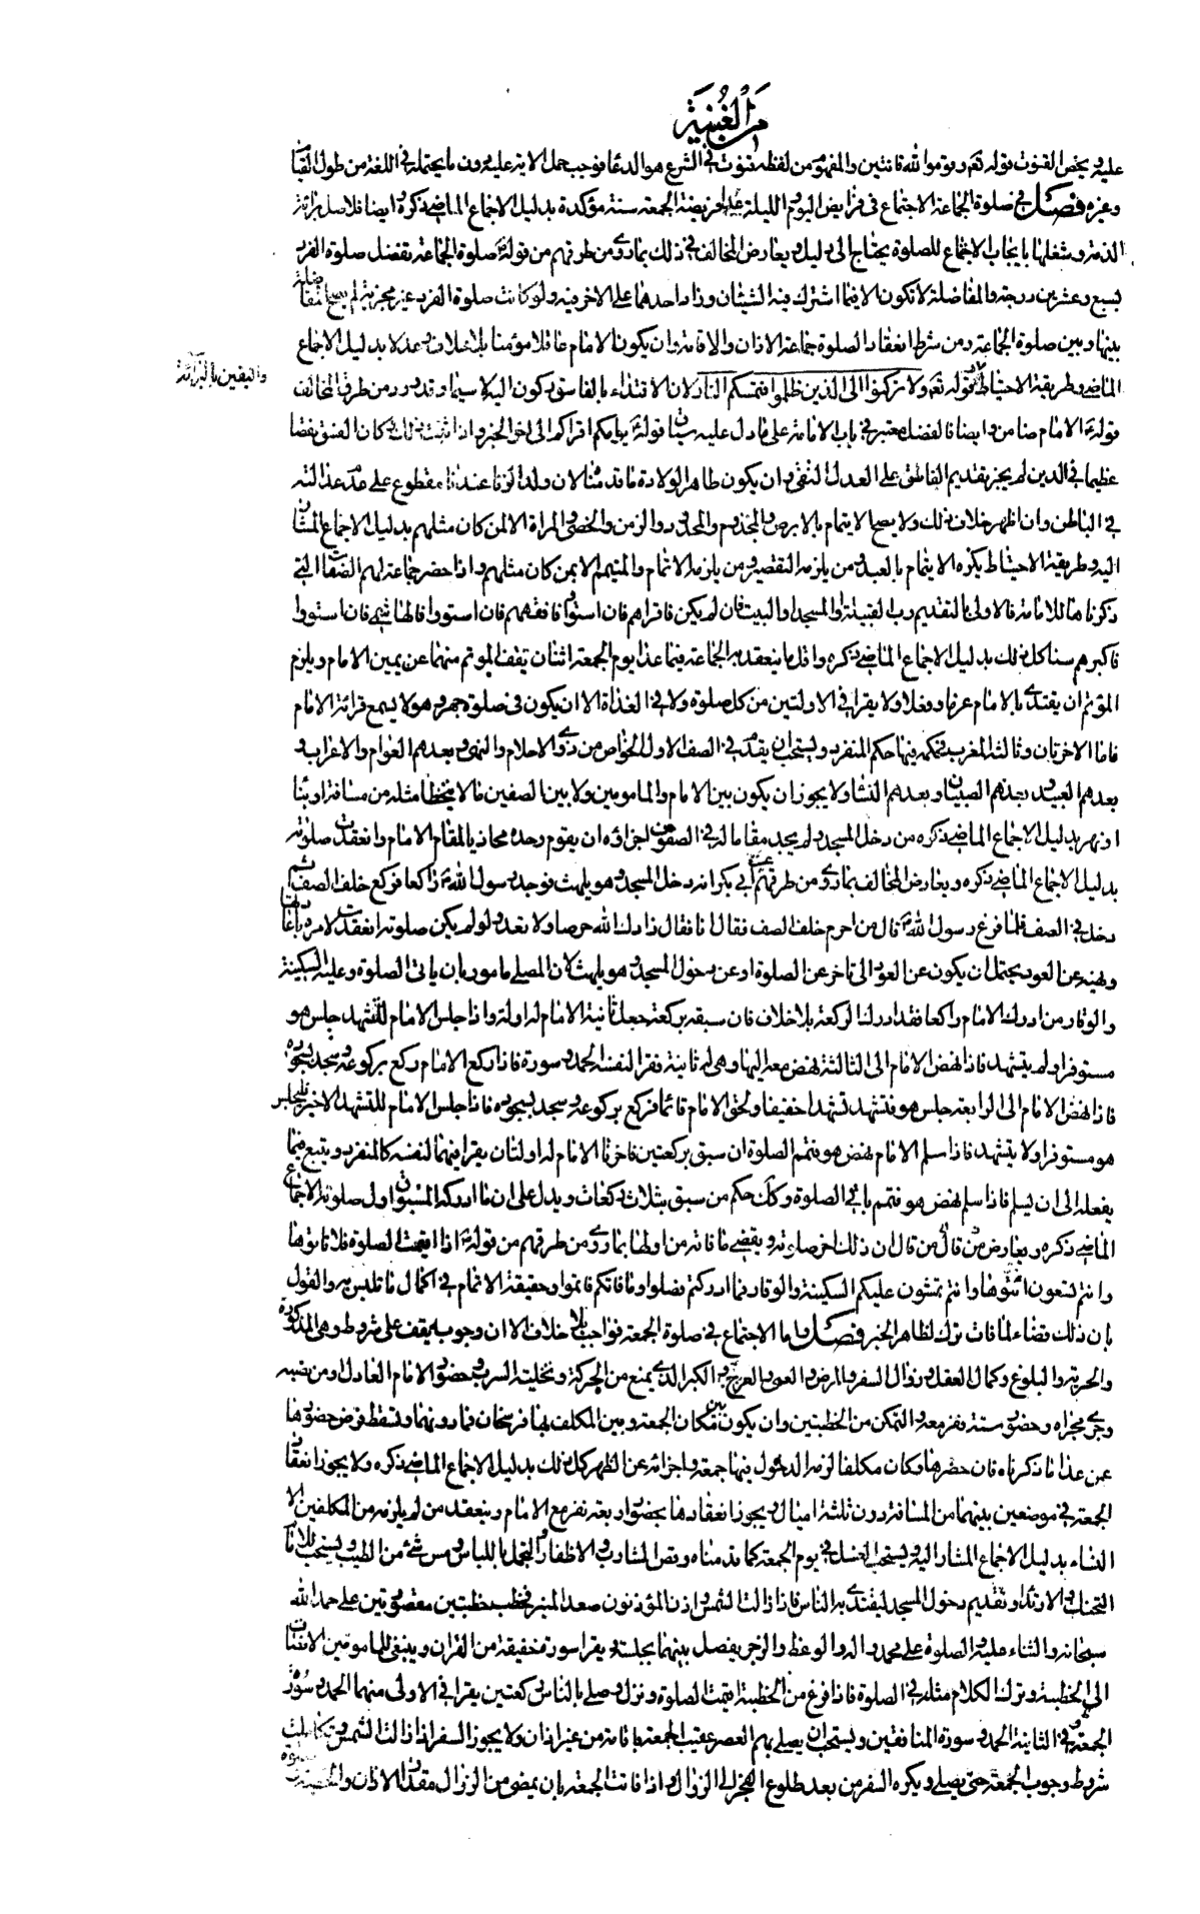 من الغنية
عليه ويخص القنوت قوله تعم وقوموا لله قانتين والمفهوم من لفظة قنوت في الشرع هو الدعا فوجب حمل الاية عليه دون ما يحتمله في اللغة من طول القيام
وغيره فصل في صلوة الجماعة الاجتماع في فرايض اليوم والليلة عدا فريضة الجمعة سنة مؤكدة بدليل الاجماع الماضي ذكره وايضا فلاصل برائة
الذمة وشغلها بايجاب الاجتماع للصلوة يحتاج الى دليل ويعارض المخالف في ذلك بما روى من طرقهم من قوله صلوة الجماعة تفضل صلوة الفرد
بسبع وعشرين درجة والمفاضلة لا تكون الا فيما اشترك فيه الشيئان وزاد احدهما على الاخر فيه ولو كانت صلوة الفرد غير مجزية لم يصح المفاضلة
بينها وبين صلوة الجماعة ومن شرط انعقاد الصلوة جماعة الاذان والاقامة وان يكون الامام عاقلا مؤمنا بلا خلاف وعدلا بدليل الاجماع
الماضي وطريقة الاحتياط وقوله تعم ولا تركنوا الى الذين ظلموا فتمسكم النار لان الاقتداء بالفاسق ركون اليه لا سيما وقد ورد من طرق المخالف
واليقين بالبرائة
قوله الامام ضامن وايضا فالفضل معتبر في باب الامامة على ما دل عليه بيان قوله يؤمكم اقراكم الى اخر الخبر واذا ثبت ذلك وكان الفسق نقصا
عظيما في الدين لم يجز تقديم الفاسق على العدل التقي وان يكون طاهر الولادة ما قدمناه لان ولد الزنا عندنا مقطوع على عدم عدالته
في الباطن وان اظهر خلاف ذلك ولا يصح الايتمام بالابرص والمجذوم والمحدود والزمن والخصي والمراة الا لمن كان مثلهم بدليل الاجماع المشار
اليه وطريقة الاحتياط يكره الايتمام بالعبد ومن يلزمه التقصير ومن يلزمه الاتمام والمتيمم الا بمن كان مثلهم واذا حضر جماعة لهم الصفات التي
ذكرناها للامامة فالاولى بالتقديم رب القبيلة او المسجد او البيت فان لم يكن فاقراهم فان استووا فافقههم فان استووا فالهاشمي فان استووا
فاكبرهم سنا كل ذلك بدليل الاجماع الماضي ذكره واقل ما ينعقد به الجماعة فيما عدا يوم الجمعة اثنان يقف المؤتم منهما عن يمين الامام ويلزم
المؤتم ان يقتدى بالامام عزما وفعلا ولا يقرا في الاولتين من كل صلوة ولا في الغداة الا ان يكون في صلوة جهر وهو لا يسمع قرائة الامام
فاما الاخرتان وثالثة المغرب فحكمه فيها حكم المنفرد ويستحب ان يقدم في الصف الاول الخواص من ذوي الاحلام والنهى وبعدهم العوام والاعراب و
بعدهم العبيد وبعدهم الصبيان وبعدهم النساء ولا يجوز ان يكون بين الامام والمامومين ولا بين الصفين ما لا يتخطا مثله من مسافة او بناء
او نهر بدليل الاجماع الماضي ذكره من دخل المسجد ولم يجد مقاما له في الصفوف اجزاؤه ان يقوم وحده محاذيا لمقام الامام وانعقدت صلوته
بدليل الاجماع الماضي ذكره ويعارض المخالف بما روى من طرقهم عن ابي بكرة انه دخل المسجد وهو يلهث فوجد رسول الله راكعا فركع خلف الصف ثم
دخل في الصف فلما فرغ رسول الله قال من احرم خلف الصف فقال انا فقال زادك الله حرصا ولا تعد ولو لم يكن صلوته انعقدت لامره باعادتها
ونهيه عن العود يحتمل ان يكون عن العود الى تاخر عن الصلوة او عن دخول المسجد وهو يلهث لان المصلي مامور بان ياتي الصلوة وعليه السكينة
والوقار ومن ادرك الامام راكعا فقد ادرك الركعة بلا خلاف فان سبقه بركعة جعل ثانية الامام له اولة واذا جلس الامام للتشهد جلس هو
مستوفزا ولم يتشهد فاذا نهض الامام الى الثالثة نهض معه اليها وهي له ثانية فقرا لنفسه الحمد وسورة فاذا ركع الامام ركع بركوعه وسجد بسجوده
فاذا نهض الامام الى الرابعة جلس هو فتشهد تشهدا خفيفا ولحق الامام قائما فركع بركوعه وسجد بسجوده فاذا جلس الامام للتشهد الاخير فليجلس
هو مستوفزا ولا يتشهد فاذا سلم الامام نهض هو فتمم الصلوة ان سبق بركعتين فاخرتا الامام له اولتان يقرا فيهما لنفسه كالمنفرد ويتبع فيما
يفعله الى ان يسلم فاذا سلم نهض هو فتمم باقي الصلوة وكذلك حكم من سبق بثلاث ركعات ويدل على ان ما ادركه المسبوق اول صلوته الاجماع
الماضي ذكره ويعارض من قال من قال ان ذلك اخر صلوته ويقضي ما فاته من اولها بما روى من طرقهم من قوله اذا اقيمت الصلوة فلا تاتوها
وانتم تسعون ائتوها وانتم تمشون عليكم السكينة والوقار فما ادركتم فصلوا وما فاتكم فاتموا وحقيقة الاتمام في اكمال ما تلبس به والقول
بان ذلك قضاء لما فات ترك لظاهر الخبر فصل واما الاجتماع في صلوة الجمعة فواجب بلا خلاف الا ان وجوبه يقف على شروط وهي الذكورة
والحرية والبلوغ وكمال العقل وزوال السفر والمرض والعمى والعرج والكبر الذي يمنع من الحركة وتخلية السرب وحضور الامام العادل او من نصبه
وجرى مجراه وحضور ستة نفر معه والتمكن من الخطبتين وان يكون بين مكان الجمعة وبين المكلف بها فرسخان فما دونهما ويسقط فرض حضورها
عمن عدا ما ذكرناه فان حضرها وكان مكلفا لزمه الدخول فيها جمعة واجزائه عن الظهر كل ذلك بدليل الاجماع الماضي ذكره ولا يجوز انعقاد
الجمعة في موضعين بينهما من المسافة دون ثلثة اميال ويجوز انعقادها بحضور اربعة نفر مع الامام وينعقد من لم يلزمه من المكلفين الا
النساء بدليل الاجماع المشار اليه ويستحب الغسل في يوم الجمعة كما قدمناه وقص الشارب والاظفار والتجمل باللباس ومس شيء من الطيب ويستحب للامام
التحنك والارتداء وتقديم دخول المسجد ليقتدى به الناس فاذا زالت الشمس واذن المؤذنون صعد المنبر فخطب خطبتين مقصورتين على حمد الله
سبحانه والثناء عليه والصلوة على محمد واله والوعظ والزجر يفصل بينهما بجلسة ويقرا سورة خفيفة من القران وينبغي للمامومين الانصات
الى الخطبة وترك الكلام مثله في الصلوة فاذا فرغ من الخطبة اقيمت الصلوة ونزل وصلى بالناس ركعتين يقرا في الاولى منهما الحمد وسورة
الجمعة وفي الثانية الحمد وسورة المنافقين ويستحب ان يصلى بهم العصر عقيب الجمعة باقامة من غير اذان ولا يجوز السفر اذا زالت الشمس وتكاملت
شروط وجوب الجمعة حتى يصلي ويكره السفر من بعد طلوع الفجر الى الزوال واذا فاتت الجمعة بان يمضي من الزوال مقدار الاذان